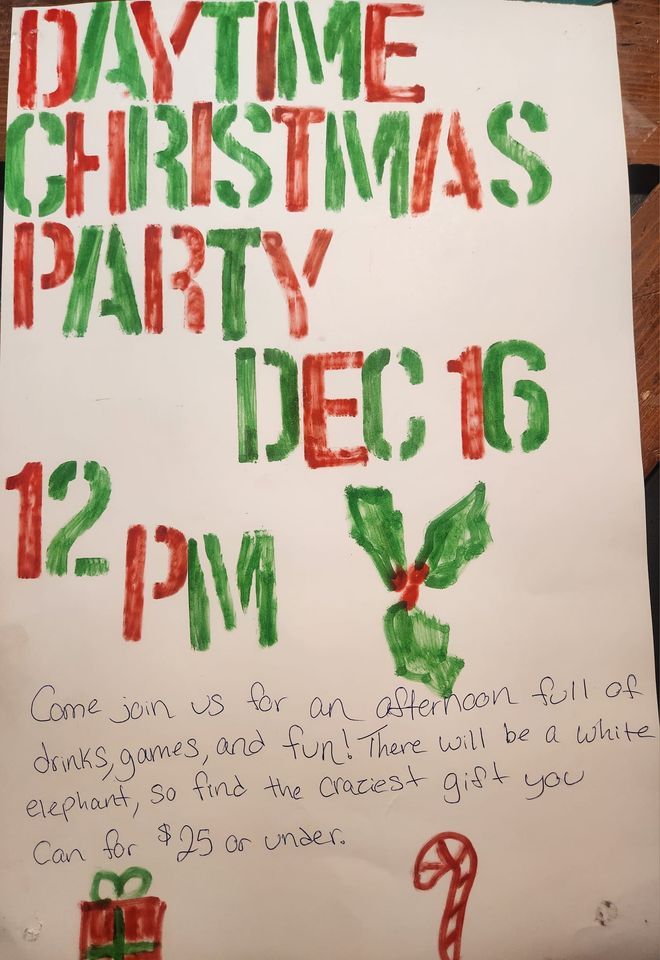 DAYTIME
CHRISTMAS
PARTY
DEC 16
12 PM
Come join us for an afternoon full of
drinks, games, and fun! There will be a white
elephant, so find the craziest gift you
can for $25 or under.